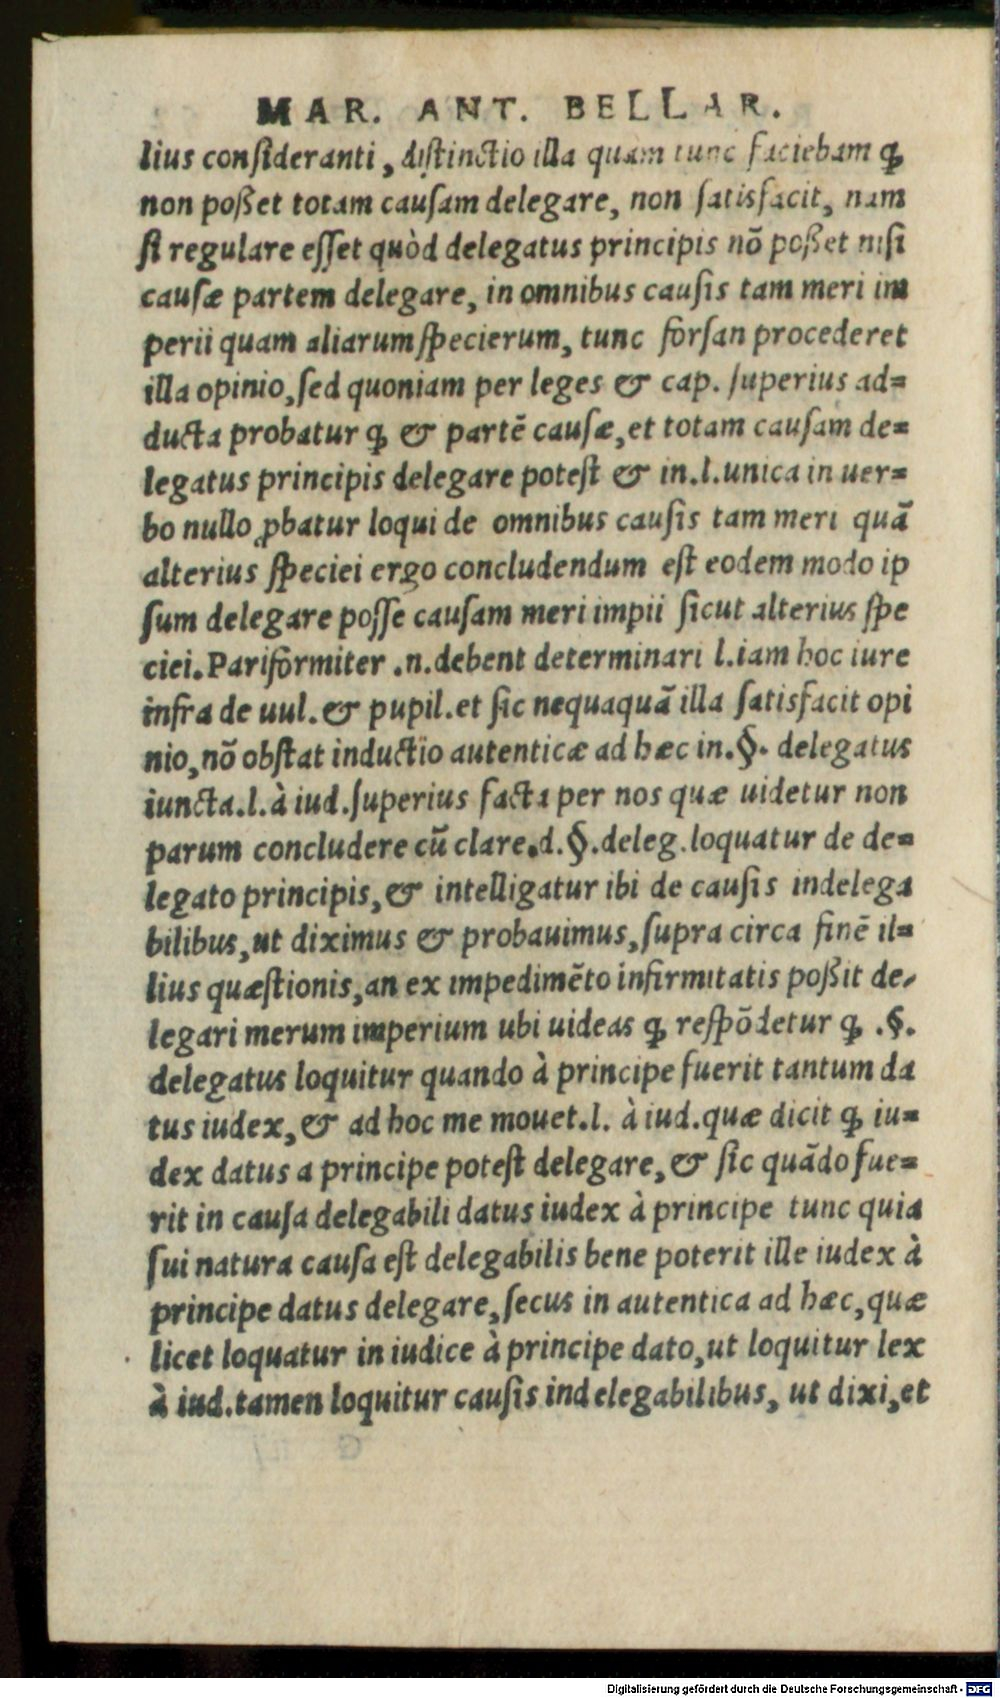 MAR. ANT. BELLAR.
lius consideranti, distinctio illa quam tunc faciebam ꝙ
non poßet totam causam delegare, non satisfacit, nam
si regulare esset quòd delegatus principis nõ poßet nisi
causæ partem delegare, in omnibus causis tam meri im
perii quam aliarum specierum, tunc forsan procederet
illa opinio, sed quoniam per leges & cap. superius ad=
ducta probatur ꝙ & partẽ causæ, et totam causam de=
legatus principis delegare potest & in.l.unica in uer=
bo nullo ꝓbatur loqui de omnibus causis tam meri quã
alterius speciei ergo concludendum est eodem modo ip
sum delegare posse causam meri impii sicut alterius spe
ciei. Pariformiter .n. debent determinari l.iam hoc iure
infra de uul. & pupil. et sic nequaquã illa satisfacit opi
nio, nõ obstat inductio autenticæ ad hæc in.§. delegatus
iuncta.l.à iud. superius facta per nos quæ uidetur non
parum concludere cũ clare.d.§.deleg. loquatur de de=
legato principis, & intelligatur ibi de causis indelega
bilibus, ut diximus & probauimus, supra circa finẽ il=
lius quæstionis, an ex impedimẽto infirmitatis poßit de-
legari merum imperium ubi uideas ꝙ respõdetur ꝙ .§.
delegatus loquitur quando à principe fuerit tantum da
tus iudex, & ad hoc me mouet.l. à iud. quæ dicit ꝙ iu=
dex datus a principe potest delegare, & sic quãdo fue=
rit in causa delegabili datus iudex à principe tunc quia
sui natura causa est delegabilis bene poterit ille iudex à
principe datus delegare, secus in autentica ad hæc, quæ
licet loquatur in iudice à principe dato, ut loquitur lex
à iud. tamen loquitur causis indelegabilibus, ut dixi, et
Digitalisierung gefördert durch die Deutsche Forschungsgemeinschaft - DFG